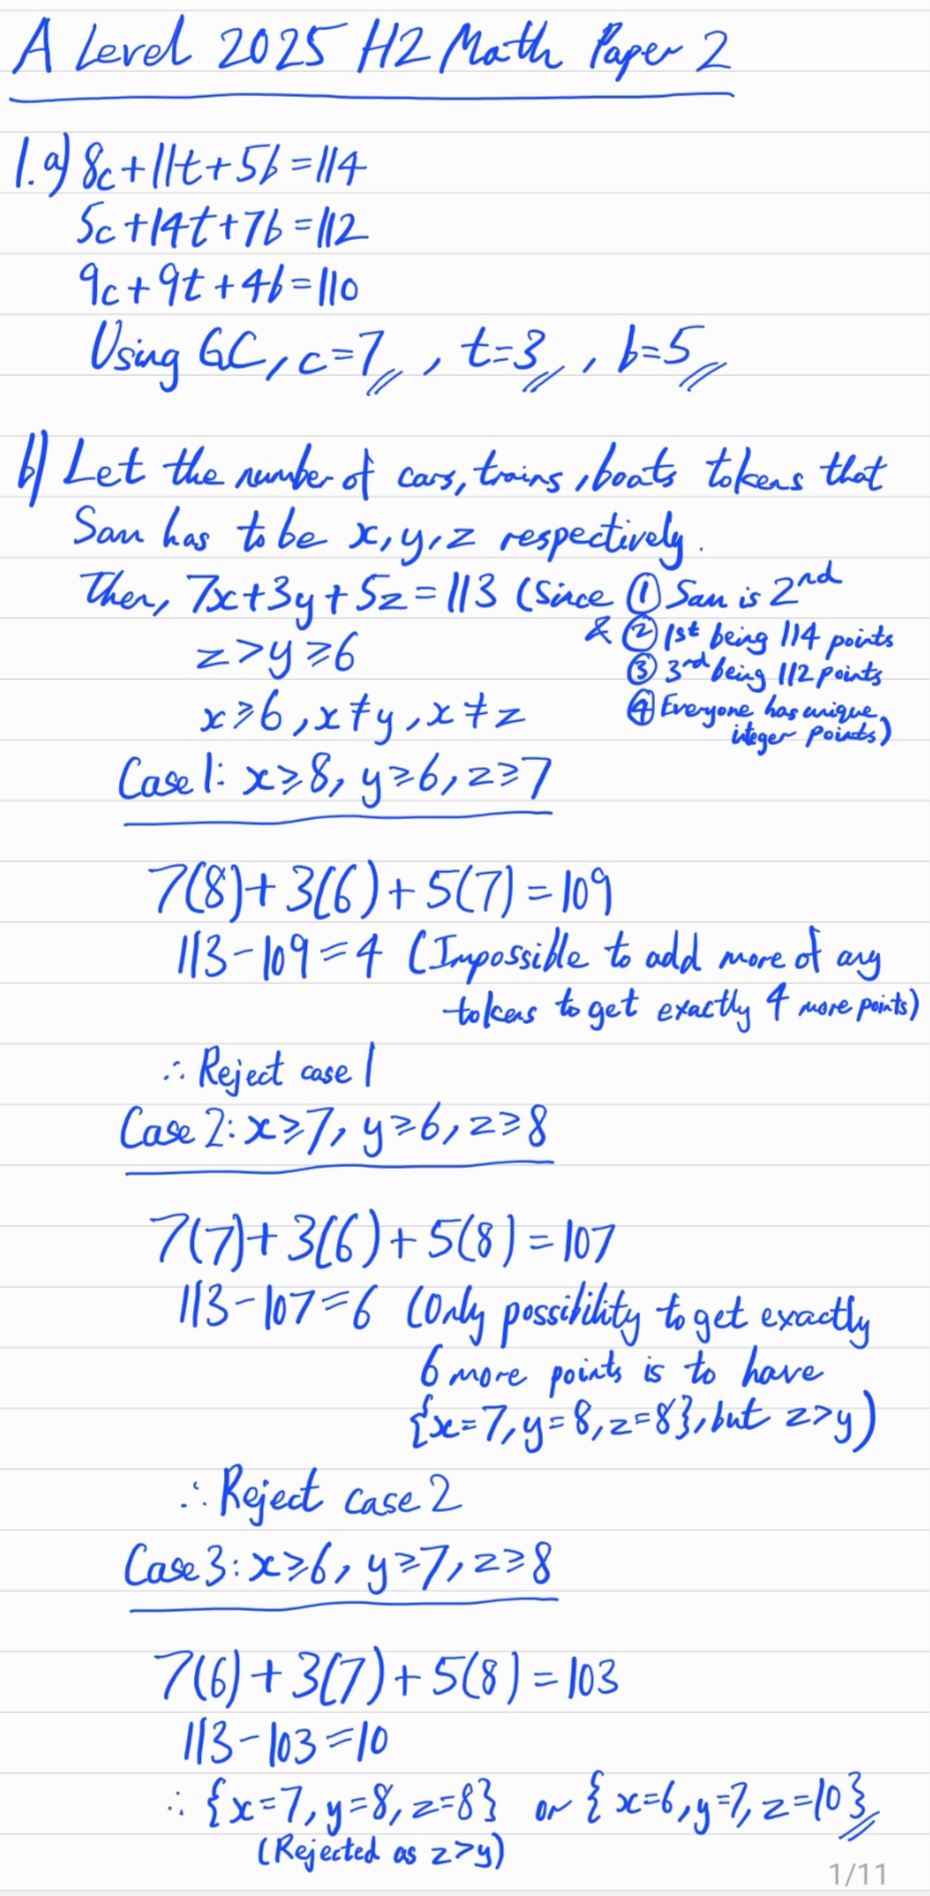 A Level 2025 H2 Math Paper 2
1.a) 8c+11t+5b=114
5c+14t+7b=112
9c+9t+4b=110
Using GC, c=7, t=3, b=5
b) Let the number of cars, trains, boats tokens that
Sam has to be x, y, z respectively.
Then, 7x+3y+5z=113 (Since ① Sam is 2nd
& ② 1st being 114 points
z>y≥6
③ 3rd being 112 points
x≥6, x≠y, x≠z
④ Everyone has unique
integer points)
Case 1: x≥8, y≥6, z≥7
7(8)+3(6)+5(7)=109
113-109=4 (Impossible to add more of any
tokens to get exactly 4 more points)
∴ Reject case 1
Case 2: x≥7, y≥6, z≥8
7(7)+3(6)+5(8)=107
113-107=6 (Only possibility to get exactly
6 more points is to have
{x=7, y=8, z=8}, but z>y)
∴ Reject case 2
Case 3: x≥6, y≥7, z≥8
7(6)+3(7)+5(8)=103
113-103=10
∴ {x=7, y=8, z=8} or {x=6, y=7, z=10}
(Rejected as z>y)
1/11